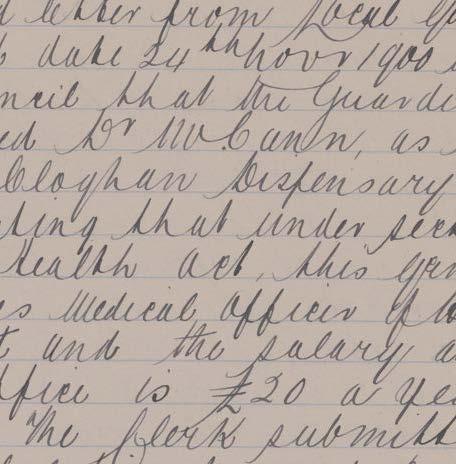 d letter from Local Go
date 24th Novr 1900
ncil that the Guardi
ed Dr McCann, as
Cloghan Dispensary
ting that under sect
Health Act, this gen
es Medical Officer of H
t and the salary a
ffice is £20 a yea
The Clerk submitt